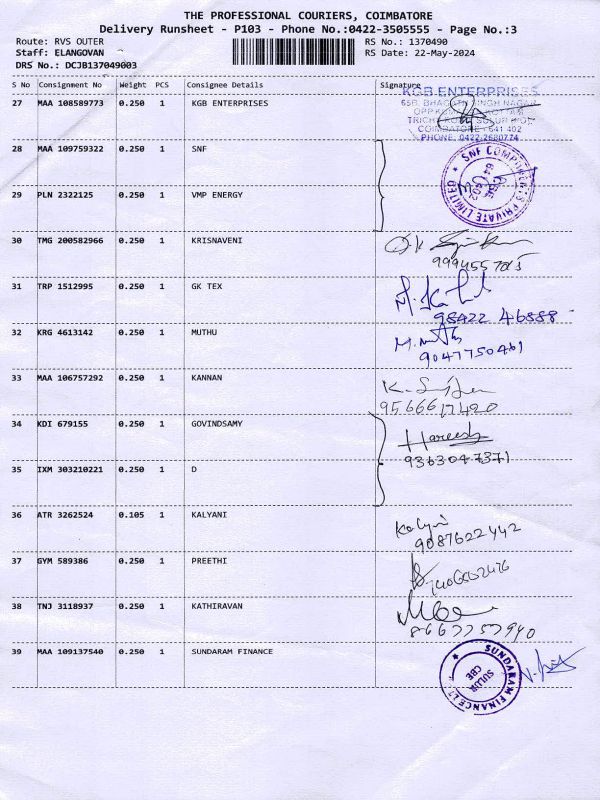 THE PROFESSIONAL COURIERS, COIMBATORE
Delivery Runsheet - P103 - Phone No.:0422-3505555 - Page No.:3
Route: RVS OUTER RS No.: 1370490
Staff: ELANGOVAN RS Date: 22-May-2024
DRS No.: DCJB137049003
S No Consignment No Weight PCS Consignee Details Signature
27 MAA 108589773 0.250 1 KGB ENTERPRISES
KGB ENTERPRISES
65B, BHAGATH SINGH NAGAR
COIMBATORE - 641 402
PHONE: 0422 2680774
28 MAA 109759322 0.250 1 SNF
SNF COMPONENTS PRIVATE LIMITED
29 PLN 2322125 0.250 1 VMP ENERGY
30 TMG 200582966 0.250 1 KRISNAVENI
31 TRP 1512995 0.250 1 GK TEX
98422 46888
32 KRG 4613142 0.250 1 MUTHU
9047750461
33 MAA 106757292 0.250 1 KANNAN
9566617420
34 KDI 679155 0.250 1 GOVINDSAMY
Hareesh
9363047371
35 IXM 303210221 0.250 1 D
36 ATR 3262524 0.105 1 KALYANI
9087622442
37 GYM 589386 0.250 1 PREETHI
38 TNJ 3118937 0.250 1 KATHIRAVAN
39 MAA 109137540 0.250 1 SUNDARAM FINANCE
SUNDARAM FINANCE LT
SULUR
CBE